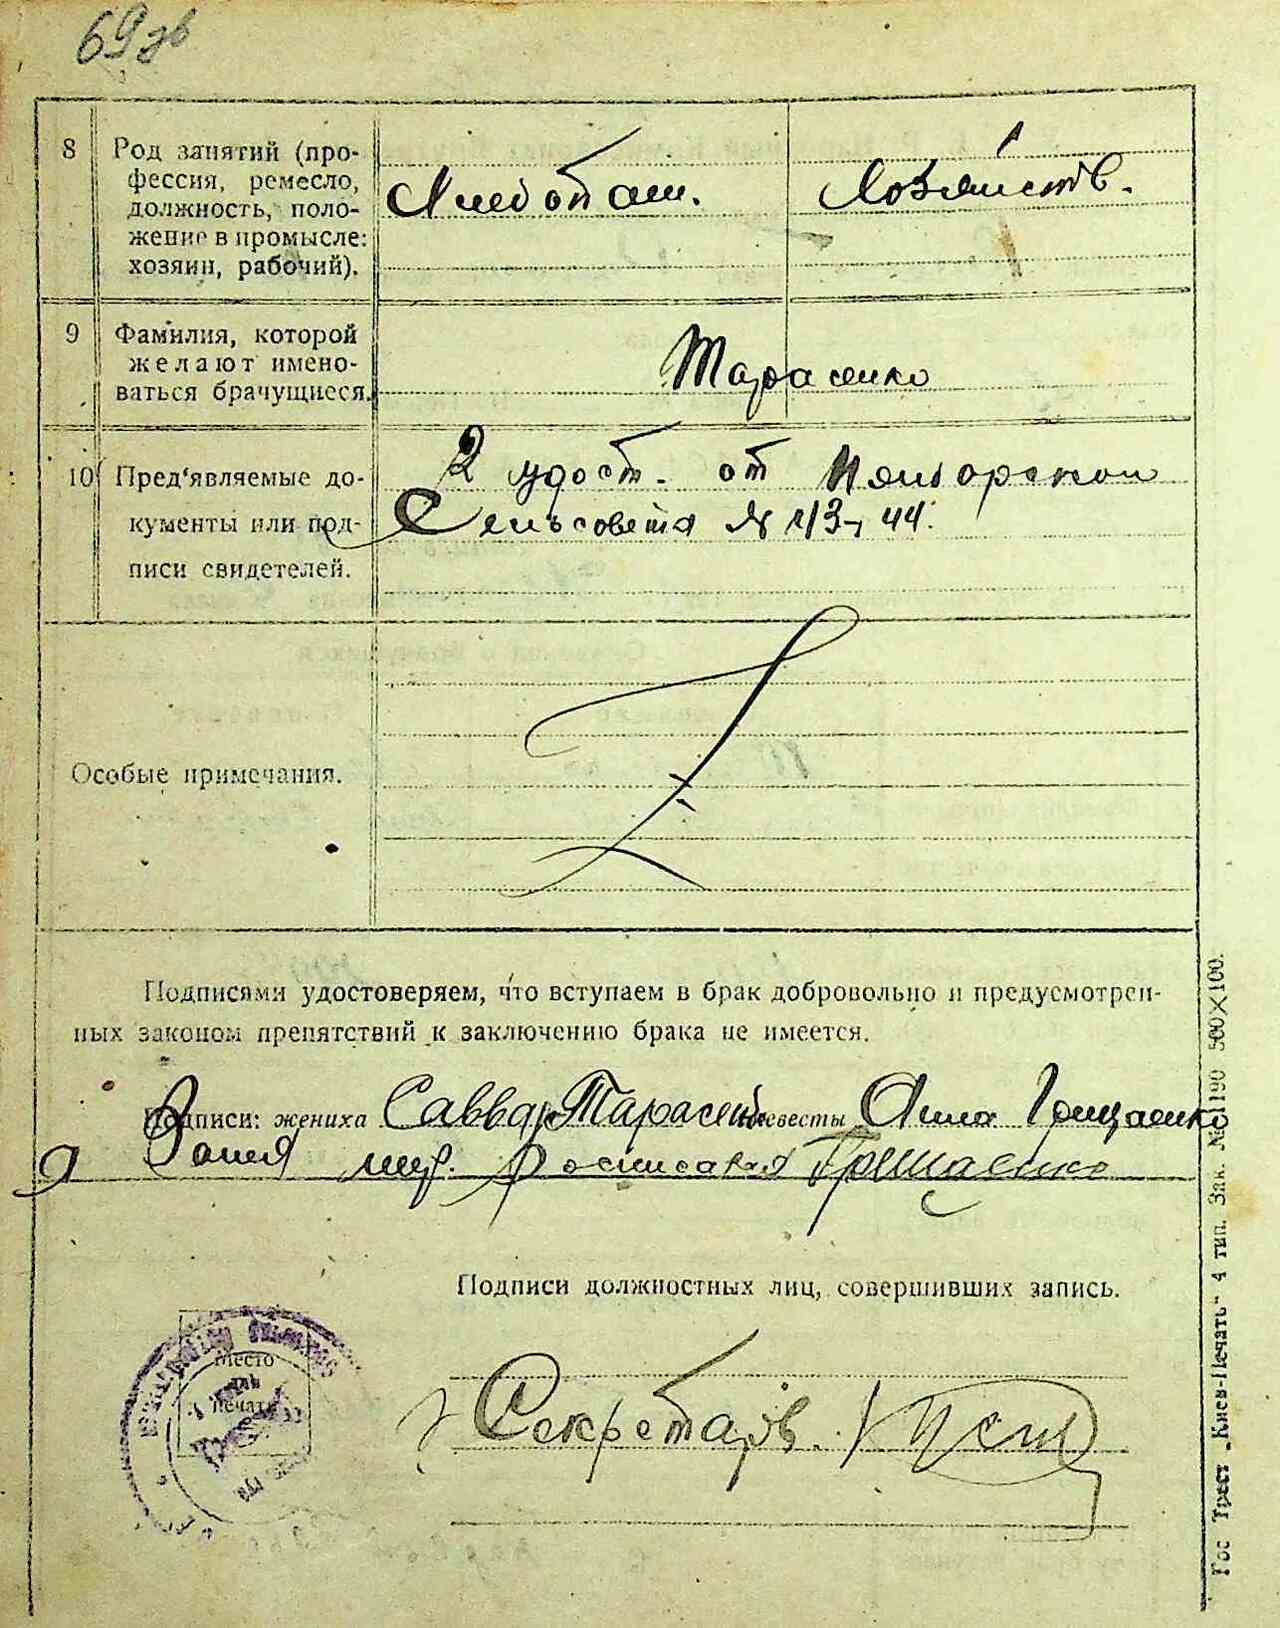 69 зв
8 Род занятий (про-
фессия, ремесло,
должность, поло-
жение в промысле:
хозяин, рабочий).
Хлебопаш. Хозяйств.
9 Фамилия, которой
желают имено-
ваться брачущиеся.
Тарасенко
10 Пред'являемые до-
кументы или под-
писи свидетелей.
2 удост. от
Сельсовета № 44.
Особые примечания.
Подписями удостоверяем, что вступаем в брак добровольно и предусмотрен-
ных законом препятствий к заключению брака не имеется.
Подписи: жениха Савва Тарасенко невесты Анна Грищенко
За росписалася Грищенко
Подписи должностных лиц, совершивших запись.
Место
печати
Секретарь
Гос Трест „Киев-Печать" 4 тип. Зак. № 1190 500×100.